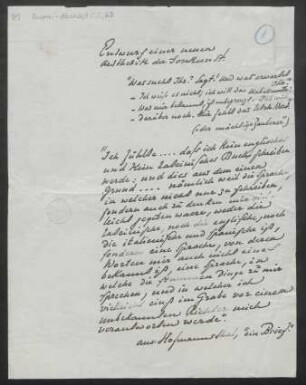 Entwurf einer neuen
Aesthetik der Tonkunst.
"Was sucht Ihr? Sagt! Und was erwartet Ihr?"
- Ich weiß es nicht; ich will das Unbekannte!
- Was mir bekannt, ist unbegrenzt. Ich will
darüber noch. Mir fehlt das letzte Wort.
(Der mächtige Zauberer.)
"Ich fühlte ... daß ich kein englisches
und kein lateinisches Buch schreiben
werde: und dies aus dem einen
Grund .... nämlich weil die Sprache,
in welcher nicht nur zu schreiben,
sondern auch zu denken mir
leicht gegeben waere, weder die
lateinische, noch die englische, noch
die italienische und spanische ist,
sondern eine Sprache, von deren
Worten mir auch nicht eines
bekannt ist, eine Sprache, in
welche die stummen Dinge zu mir
sprechen, und in welcher ich
vielleicht einst im Grabe vor einem
unbekannten Richter mich
verantworten werde."
aus Hofmannsthal, "ein Brief."